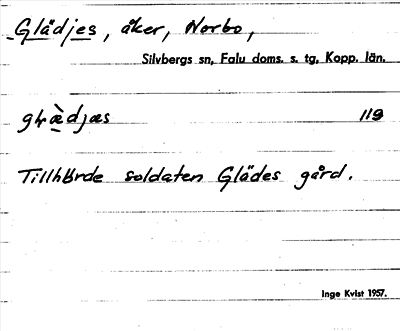 Glädjes, åker, Norbo,
Silvbergs sn, Falu doms. s. tg, Kopp. län.
119
Tillhörde soldaten Glädes gård.
Inge Kvist 1957.